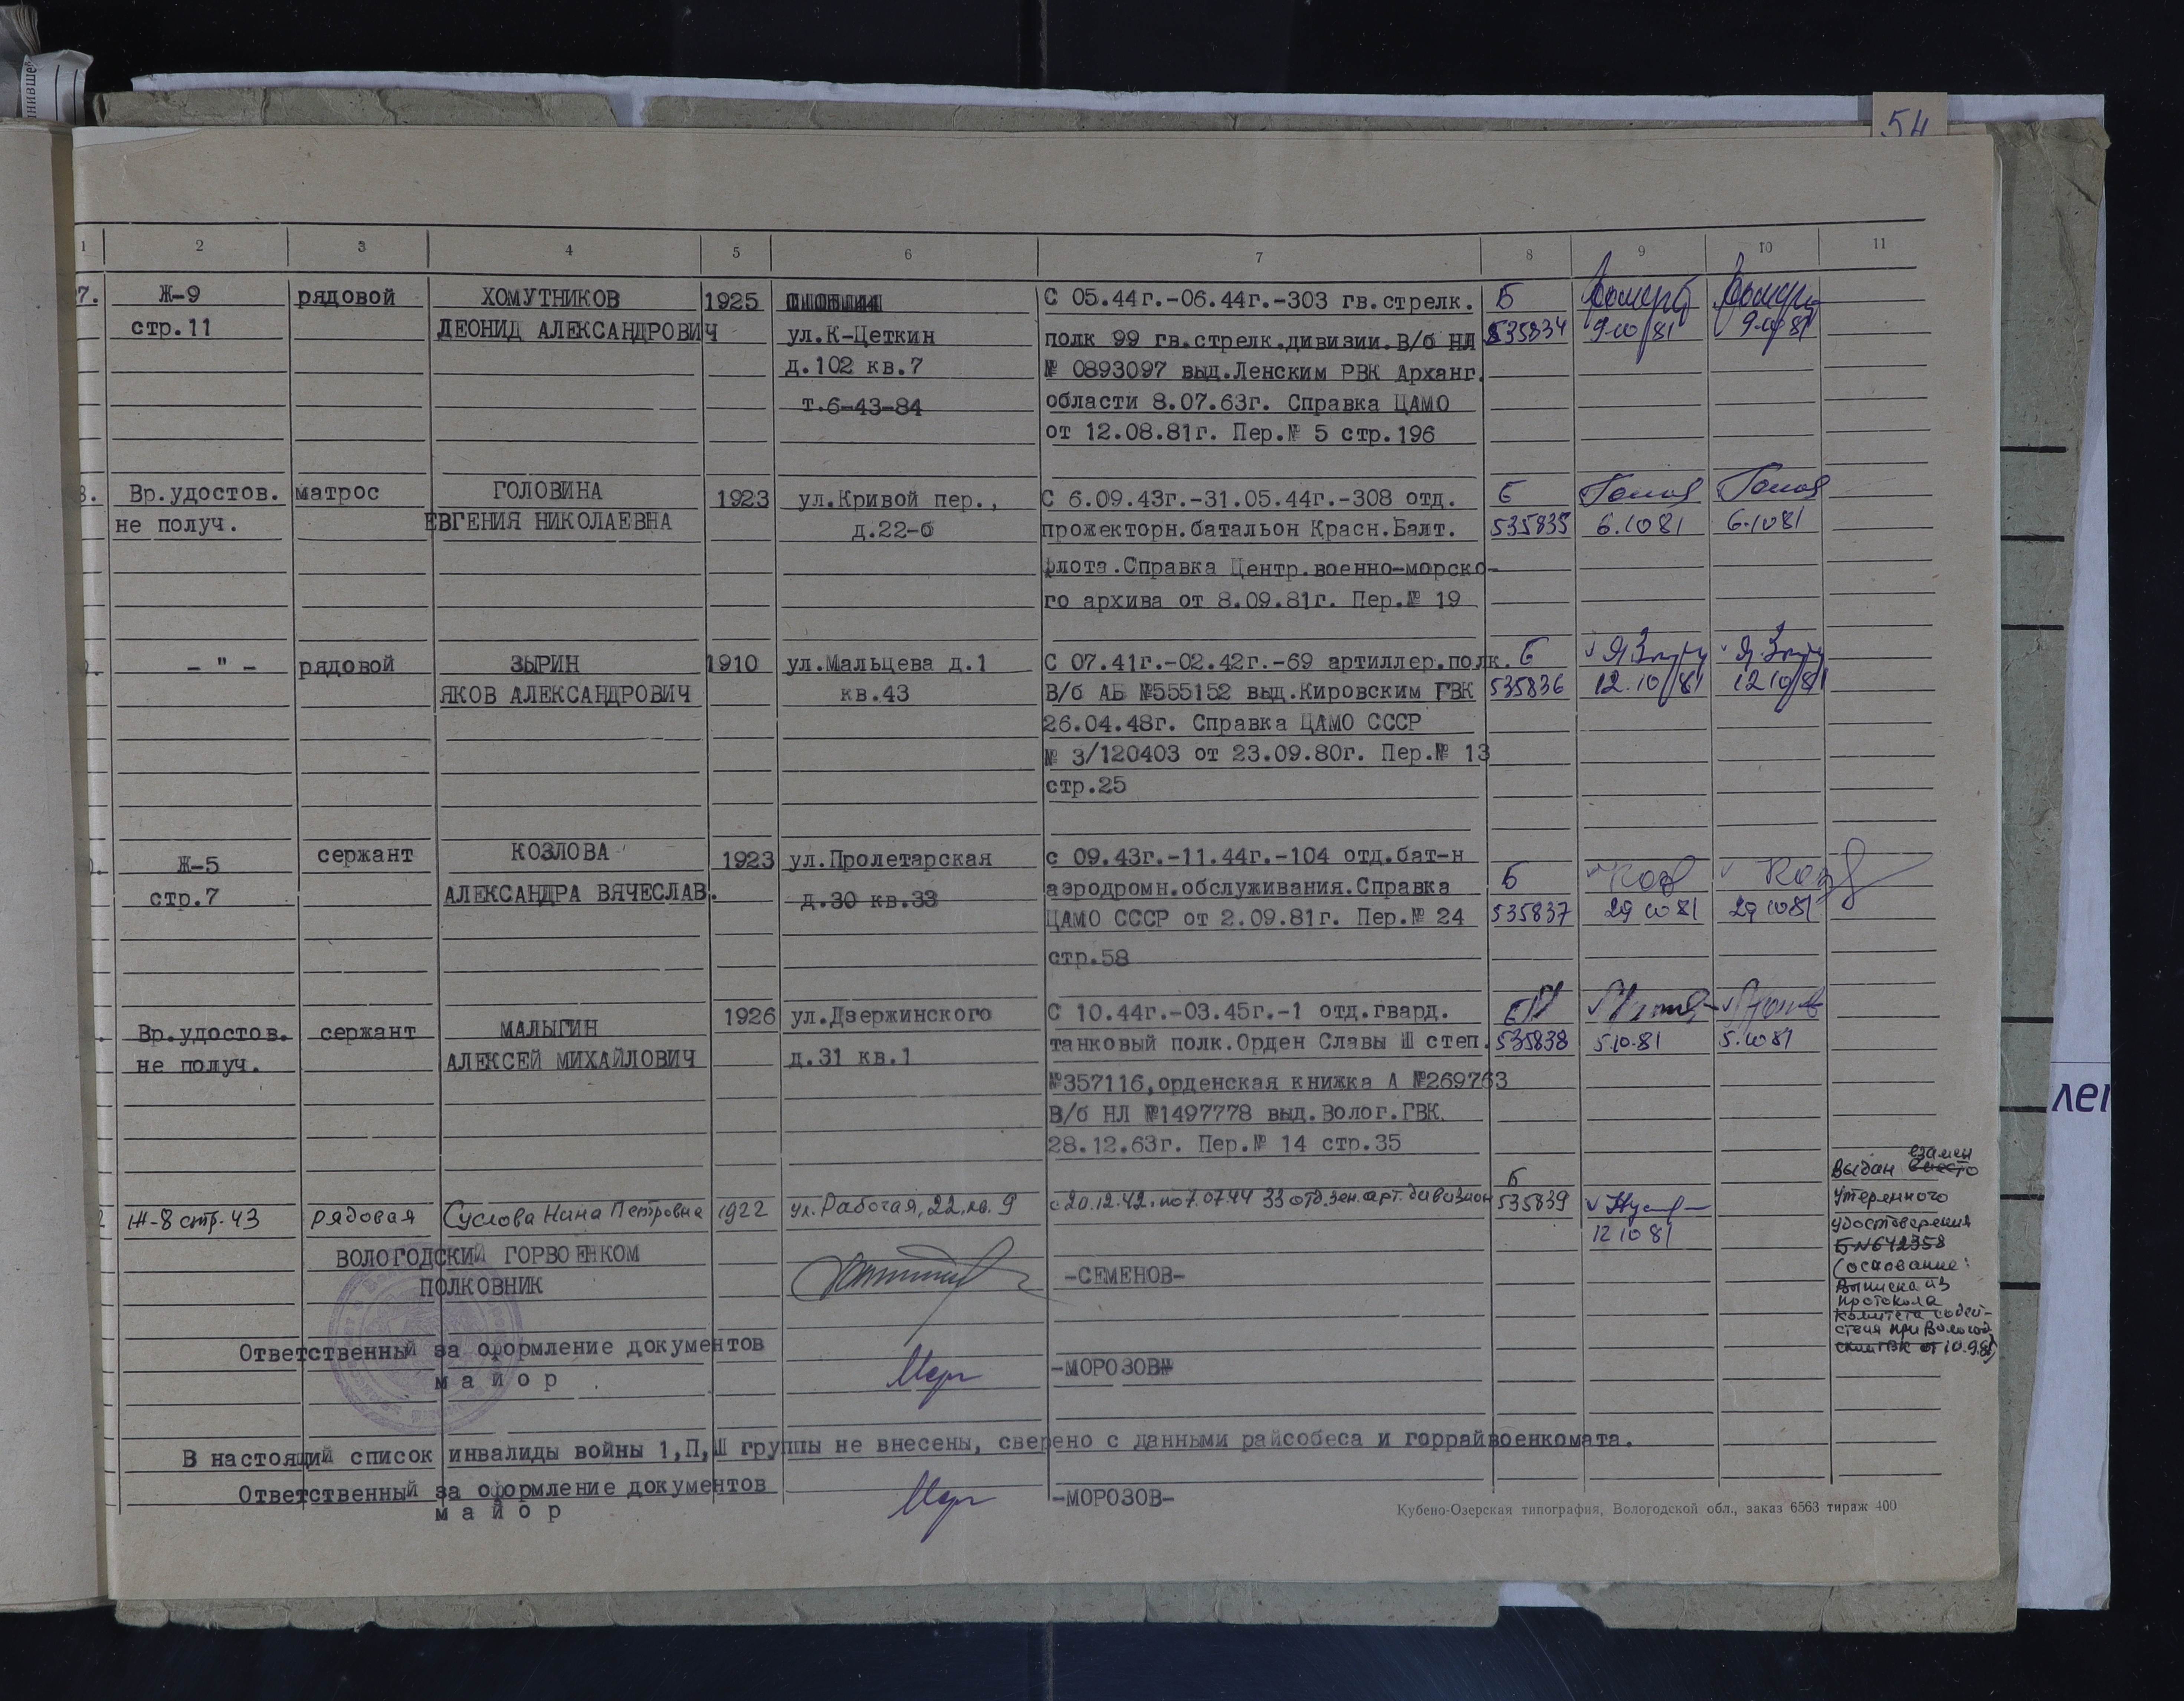 54
1 2 3 4 5 6 7 8 9 10 11
7. Ж-9 рядовой ХОМУТНИКОВ 1925 С 05.44г.-06.44г.-303 гв.стрелк. Б
стр.11 ЛЕОНИД АЛЕКСАНДРОВИЧ ул.К-Цеткин полк 99 гв.стрелк.дивизии.В/б НЛ 535834 9.10 81 9.10 81
д.102 кв.7 № 0893097 выд.Ленским РВК Арханг.
т.6-43-84 области 8.07.63г. Справка ЦАМО
от 12.08.81г. Пер.№ 5 стр.196
8. Вр.удостов. матрос ГОЛОВИНА 1923 ул.Кривой пер., С 6.09.43г.-31.05.44г.-308 отд. Б
не получ. ЕВГЕНИЯ НИКОЛАЕВНА д.22-б прожекторн.батальон Красн.Балт. 535835 6.10 81 6.10 81
флота.Справка Центр.военно-морско-
го архива от 8.09.81г. Пер.№ 19
- " - рядовой ЗЫРИН 1910 ул.Мальцева д.1 С 07.41г.-02.42г.-69 артиллер.полк. Б
ЯКОВ АЛЕКСАНДРОВИЧ кв.43 В/б АБ №555152 выд.Кировским ГВК 535836 12.10 81 12 10 81
26.04.48г. Справка ЦАМО СССР
№ 3/120403 от 23.09.80г. Пер.№ 13
стр.25
Ж-5 сержант КОЗЛОВА 1923 ул.Пролетарская с 09.43г.-11.44г.-104 отд.бат-н
стр.7 АЛЕКСАНДРА ВЯЧЕСЛАВ. д.30 кв.33 аэродромн.обслуживания.Справка Б
ЦАМО СССР от 2.09.81г. Пер.№ 24 535837 29 10 81 29 10 81
стр.58
Вр.удостов. сержант МАЛЫГИН 1926 ул.Дзержинского С 10.44г.-03.45г.-1 отд.гвард. Б
не получ. АЛЕКСЕЙ МИХАЙЛОВИЧ д.31 кв.1 танковый полк.Орден Славы Ш степ. 535838 5.10.81 5.10 81
№357116,орденская книжка А №269763
В/б НЛ №1497778 выд.Волог.ГВК
28.12.63г. Пер.№ 14 стр.35
2 Ж-8 стр.43 рядовая Суслова Нина Петровна 1922 ул.Рабочая,22,кв.9 с 20.12.42. по 7.07.44 33 отд.зен.арт.дивизион Б 535839
12 10 81
Выдан вместо взамен
утерянного
удостоверения
Б №642358
(основание:
выписка из
протокола
комитета содей-
ствия при Вологод-
ском ГВК от 10.9.81)
ВОЛОГОДСКИЙ ГОРВОЕНКОМ
ПОЛКОВНИК -СЕМЕНОВ-
Ответственный за оформление документов
м а й о р -МОРОЗОВ-
В настоящий список инвалиды войны 1,П,Ш группы не внесены, сверено с данными райсобеса и горрайвоенкомата.
Ответственный за оформление документов
м а й о р -МОРОЗОВ-
Кубено-Озерская типография, Вологодской обл., заказ 6563 тираж 400